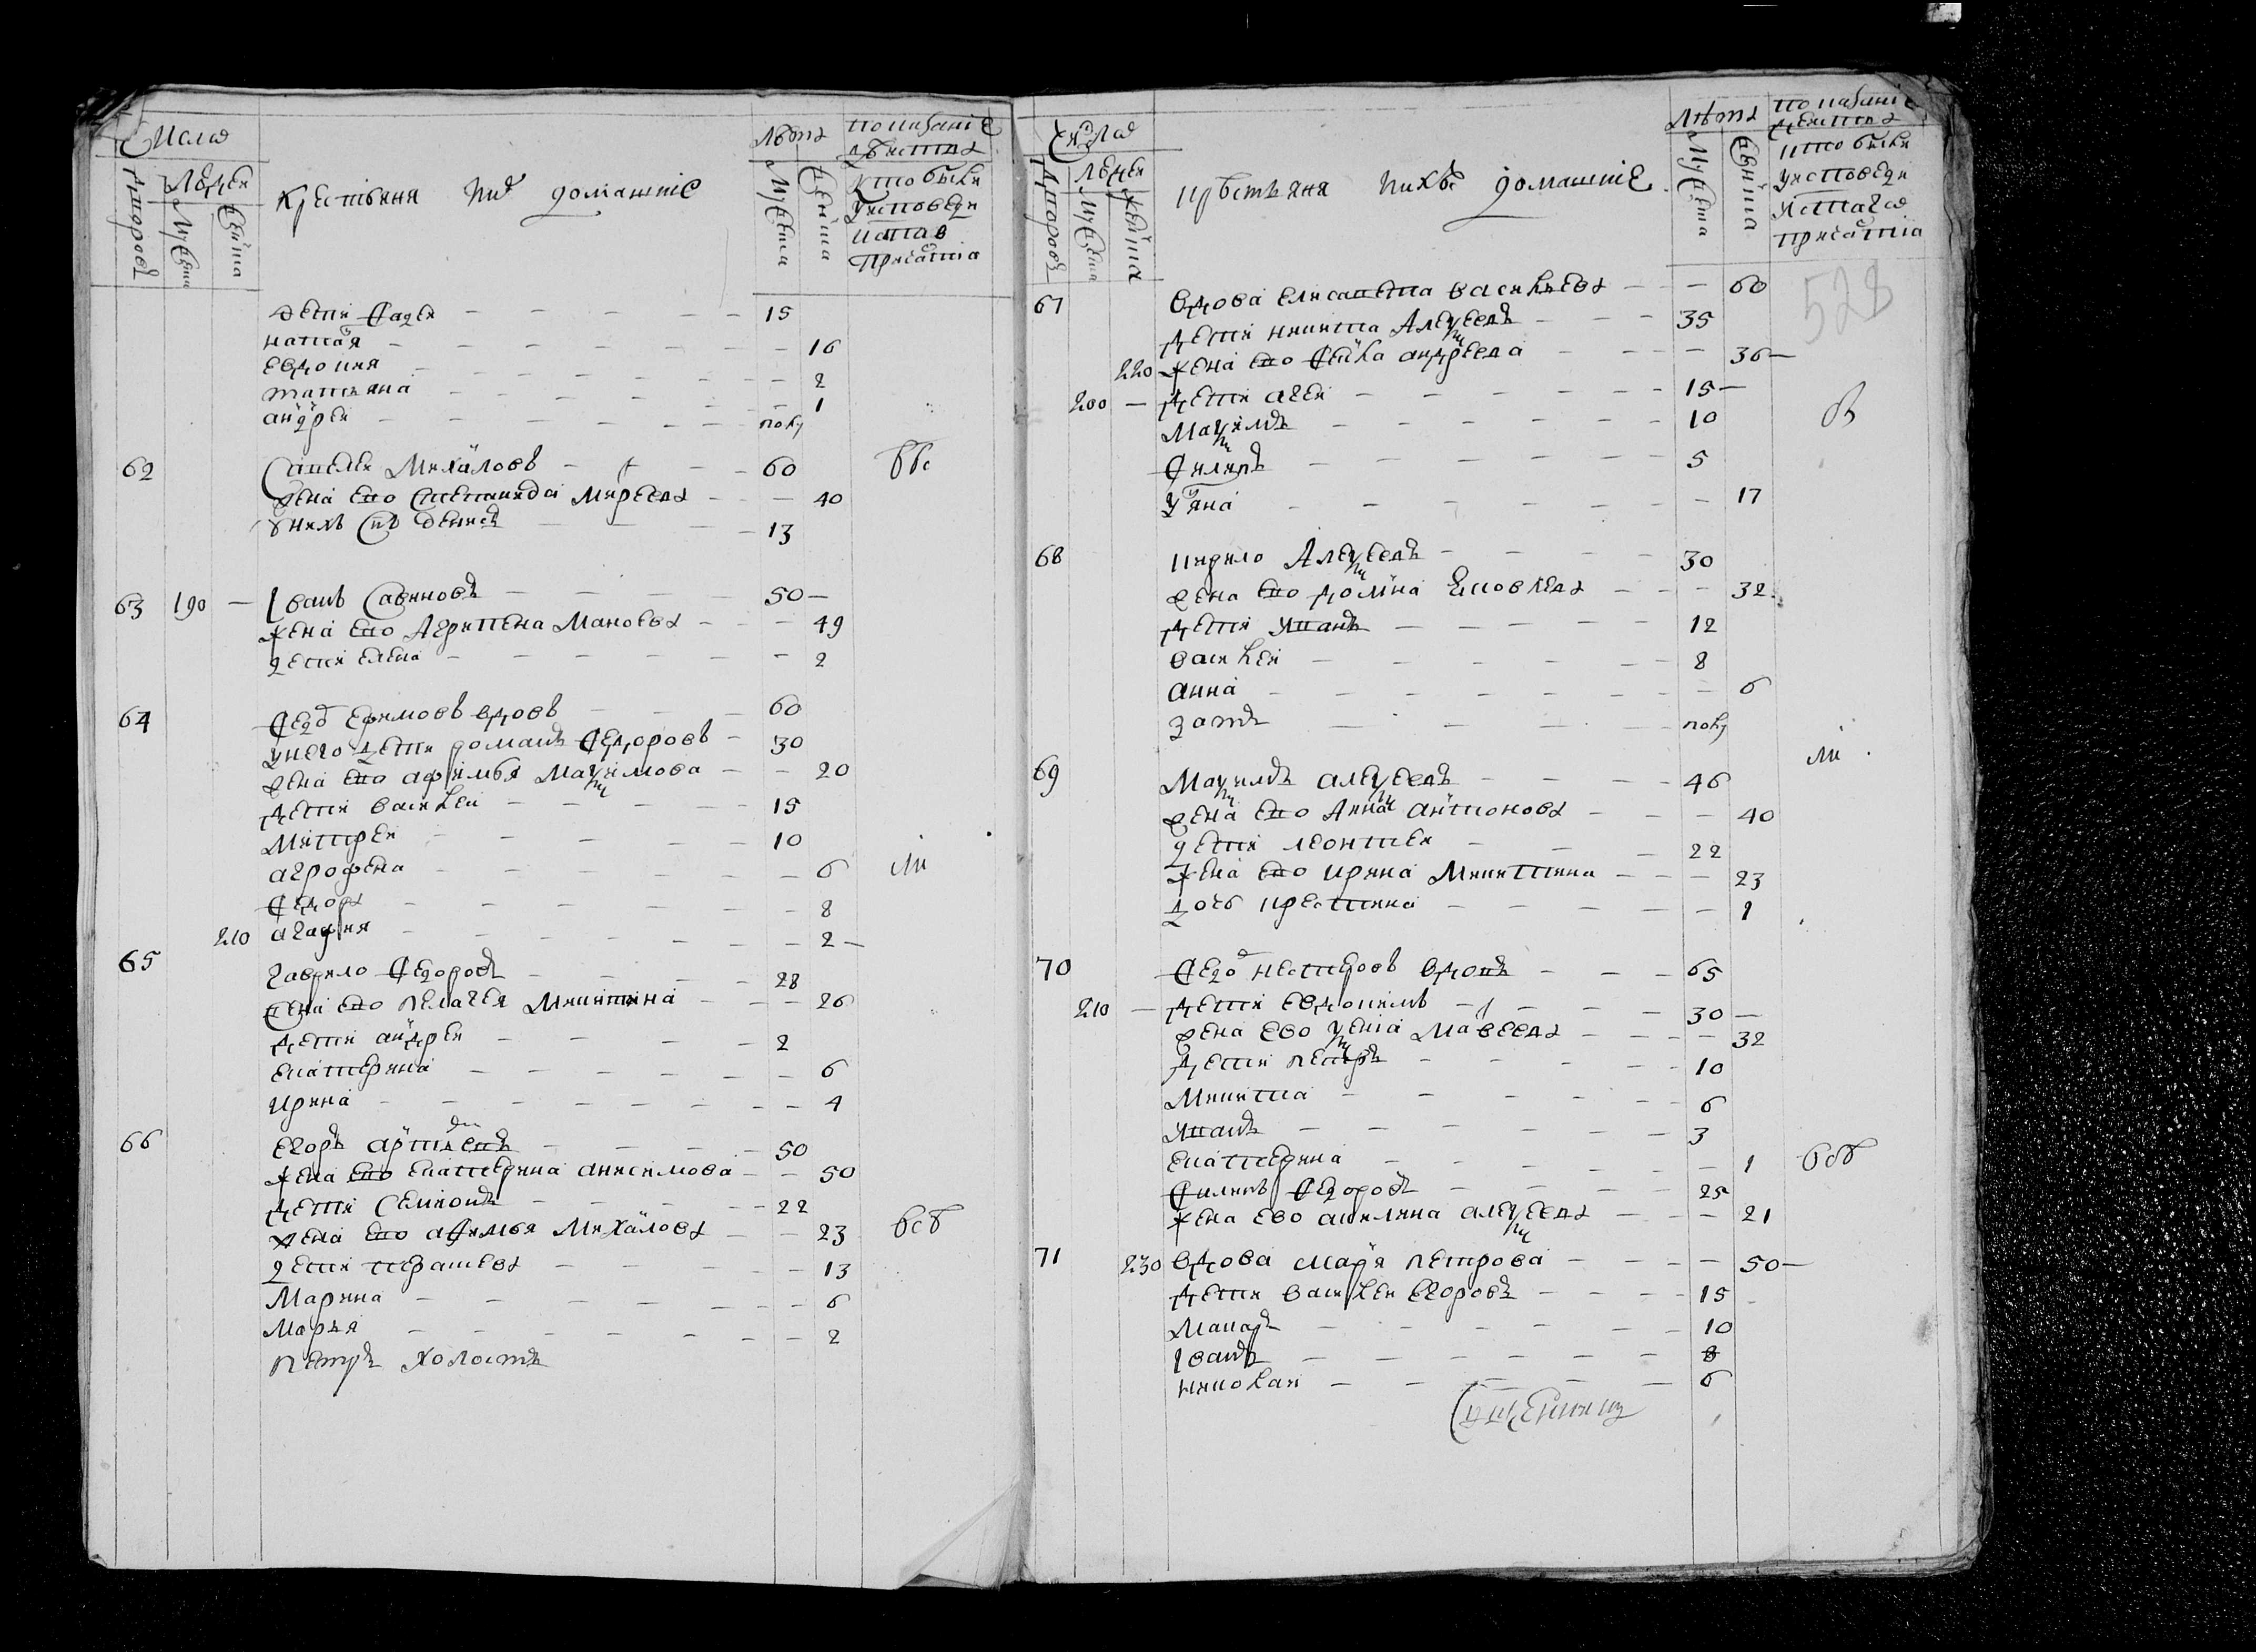 Число
Людей
Дворовъ
Мужска
Женска
Крестьяня и их домашние
Лѣта
Мужска
Женска
Показание
действа
кто были
у исповеди
и святаго
причастия
дети Фадеи 15
наталя 16
евдокия 2
татьяна 1
андреи полу
62 Савелеи Михаловъ 60
жена ево Степанида Макреева 40
у нихъ снъ денисъ 13
63 190 Иванъ Савиновъ 50
жена ево Агрипена Макоева 49
дети елена 2
64 Федоръ Ефимовъ вдовъ 60
у него дети романъ Федоровъ 30
жена ево афимья Максимова 20
дети василеи 15
Митреи 10
агрофена 6
Федора 8
210 агафия 2
65 гаврило Федоровъ 28
жена ево пелагея Микитина 26
дети андреи 2
екатерина 6
ирина 4
66 Егоръ артемевъ 50
жена ево екатерина анисимова 50
дети Семионъ 22
жена ево афимья Михалова 23
дети
13
Марина 6
Марья 2
петръ холостъ
Число
Людей
Дворовъ
Мужска
Женска
крѣстьяня и ихъ домашние
Лѣта
Мужска
Женска
Показание
действа
кто были
у исповеди
и святаго
причастия
528
67 вдова елисавета васильева 60
дети никита Алексеевъ 35
220 жена ево Фекла андреева 36
200 дети агеи 15
Максимъ 10
Филипъ 5
уляна 17
68 кирило Алексеевъ 30
жена ево домна Яковлева 32
дети иванъ 12
василеи 8
анна 6
зать полу
69 Максимъ алексеевъ 46
жена ево Анна антонова 40
дети леонтеи 22
жена ево ирина Микитина 23
дочь крестина 1
70 Федоръ нестеровъ вдовъ 65
210 дети евдокимъ 30
жена ево ксениа Мавеева 32
дети петръ 10
Микита 6
иванъ 3
екатерина 1
Филипъ Федоровъ 25
жена ево акилина алексеева 21
71 230 вдова маря петрова 50
дети василеи егоровъ 15
Макаръ 10
Иванъ 8
николаи 6
Священникъ